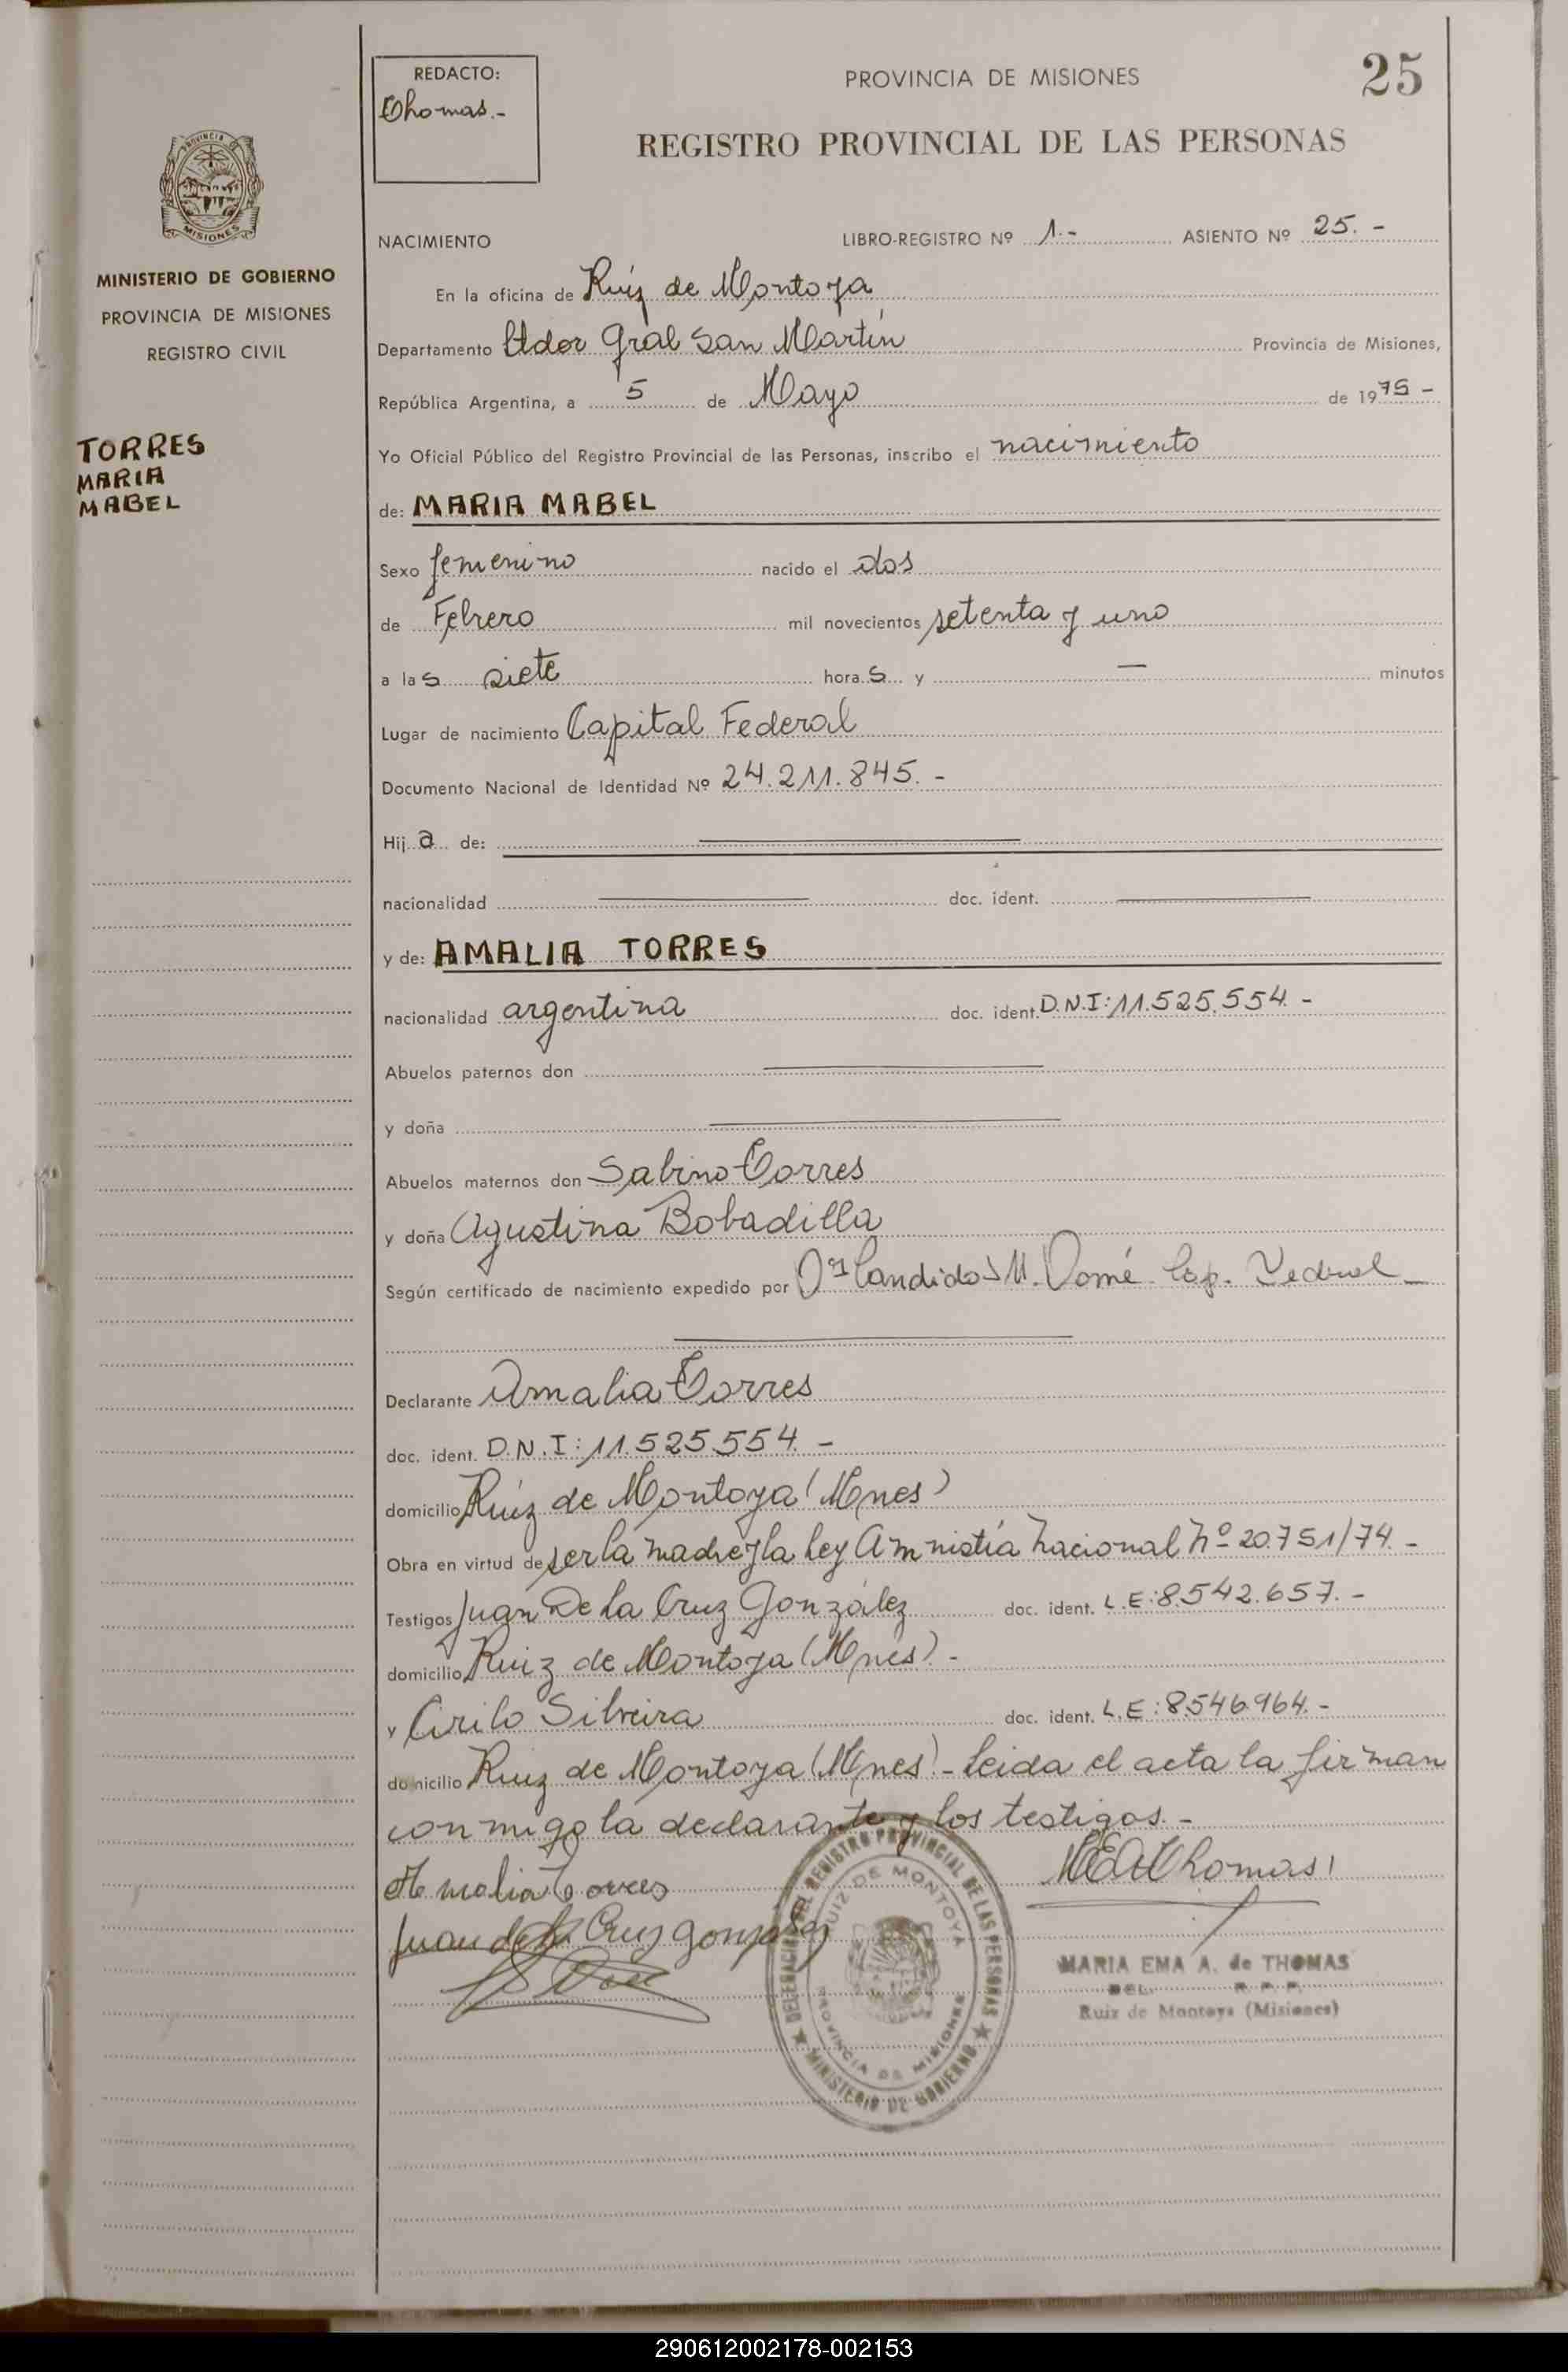 REDACTO:
Thomas.-
PROVINCIA DE MISIONES
25
REGISTRO PROVINCIAL DE LAS PERSONAS
PROVINCIA DE
MISIONES
MINISTERIO DE GOBIERNO
PROVINCIA DE MISIONES
REGISTRO CIVIL
TORRES
MARIA
MABEL
NACIMIENTO LIBRO-REGISTRO Nº 1.- ASIENTO Nº 25.-
En la oficina de Ruíz de Montoya
Departamento Ldor Gral San Martín Provincia de Misiones,
República Argentina, a 5 de Mayo de 1975-
Yo Oficial Público del Registro Provincial de las Personas, inscribo el nacimiento
de: MARIA MABEL
Sexo femenino nacido el dos
de Febrero mil novecientos setenta y uno
a las siete horas y — minutos
Lugar de nacimiento Capital Federal
Documento Nacional de Identidad Nº 24.211.845.-
Hija de:
nacionalidad doc. ident.
y de: AMALIA TORRES
nacionalidad argentina doc. ident. D.N.I:11.525.554.-
Abuelos paternos don
y doña
Abuelos maternos don Sabino Torres
y doña Agustina Bobadilla
Según certificado de nacimiento expedido por Candido M. Cap. Federal
Declarante Amalia Torres
doc. ident. D.N.I:11.525.554.-
domicilio Ruíz de Montoya (Mnes)
Obra en virtud de ser la madre y la ley Amnistía Nacional Nº 20.751/74.-
Testigos Juan De la Cruz González doc. ident. L.E:8.542.657.-
domicilio Ruiz de Montoya (Mnes).-
y Cirilo Silveira doc. ident. L.E:8.546.964.-
domicilio Ruiz de Montoya (Mnes)- Leida el acta la firman
conmigo la declarante y los testigos.-
Amalia Torres
MEAThomas
Juan de la Cruz Gonzalez
DELEGACION DEL REGISTRO PROVINCIAL DE LAS PERSONAS
RUIZ DE MONTOYA
PROVINCIA DE MISIONES
MINISTERIO DE GOBIERNO
MARIA EMA A. de THOMAS
DEL. R.P.P.
Ruiz de Montoya (Misiones)
290612002178-002153